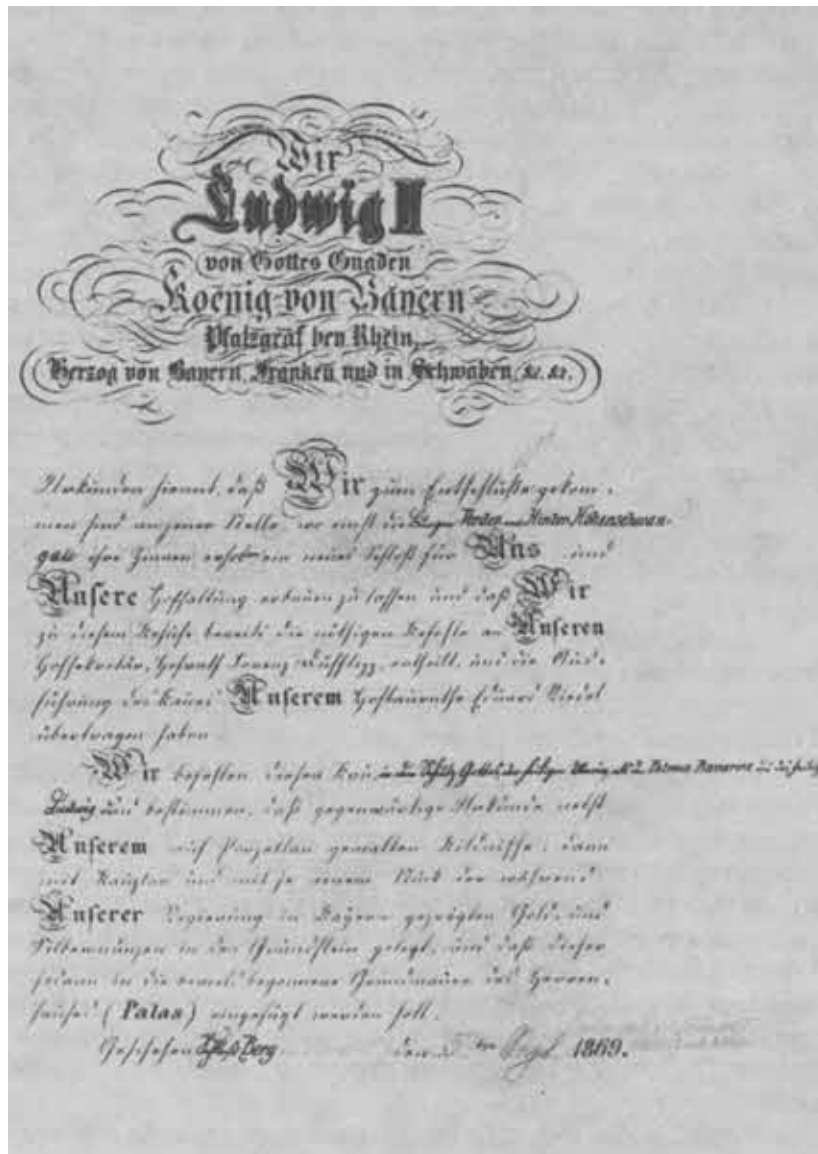 Wir
Ludwig II
von Gottes Gnaden
Koenig von Bayern
Pfalzgraf bey Rhein,
Herzog von Bayern, Franken und in Schwaben, &c. &c.
Urkunden hiemit, daß Wir zum Entschluße gekom-
men sind an jener Stelle, wo einst die Burgen Vorder und Hinter Hohenschwan-
gau ihre Zinnen erhoben ein neues Schloß für Uns und
Unsere Hofhaltung erbauen zu lassen und daß Wir
zu diesem Behufe bereits die nöthigen Befehle an Unseren
Hofsekretär, Hofrath Lorenz Düfflipp, ertheilt, und die Aus-
führung des Baues Unserem Hofbaurathe Eduard Riedel
übertragen haben.
Wir befehlen diesen Bau in den Schutz Gottes, der heiligen Maria, Patrona Bavariae und des heilig
Ludwig und bestimmen, daß gegenwärtige Urkunde nebst
Unserem auf Porzellan gemalten Bildnisse, dann
mit Bauplan und mit je einem Stück der während
Unserer Regierung in Bayern geprägten Gold- und
Silbermünzen in den Grundstein gelegt, und daß dieser
sodann in die bereits begonnene Grundmauer des Herren-
hauses (Palas) eingefügt werden soll.
Geschehen Schloß Berg, den Sept. 1869.